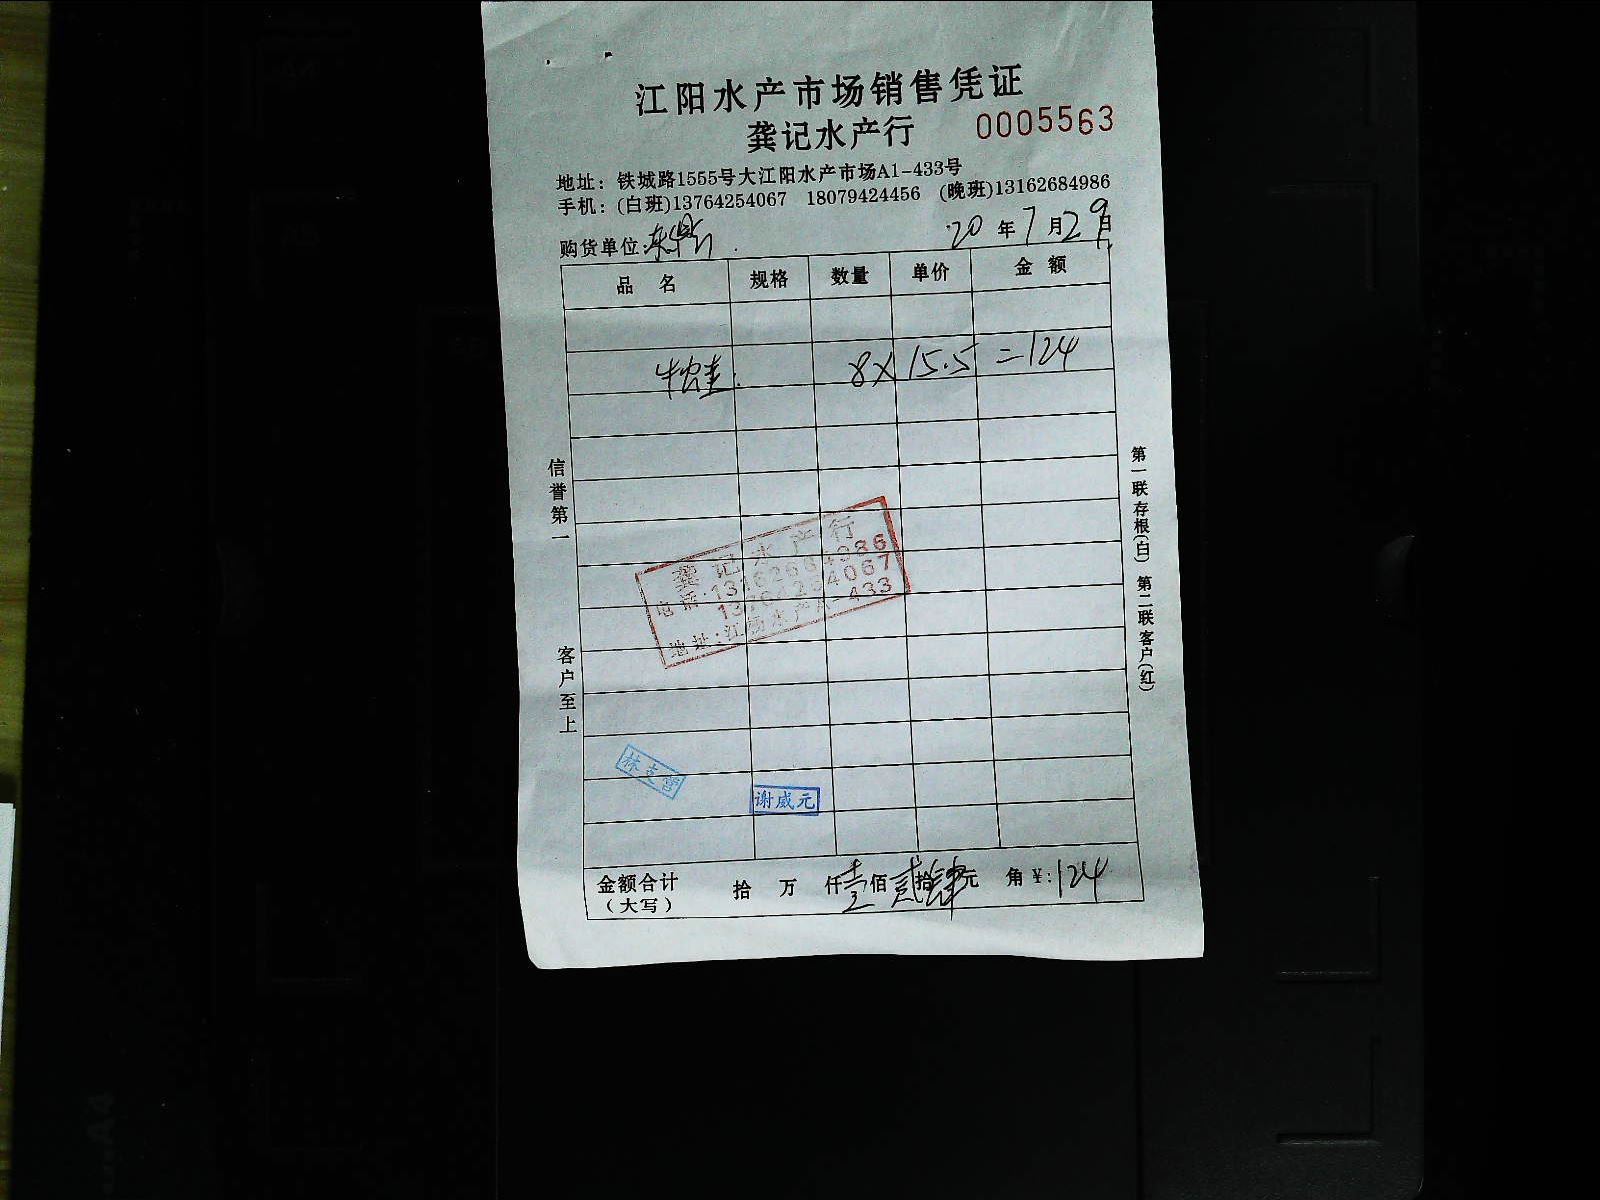 江阳水产市场销售凭证
龚记水产行 0005563
地址：铁城路1555号大江阳水产市场A1-433号
手机：(白班)13764254067 18079424456 (晚班)13162684986
购货单位: 20 年 7 月 29 日
品 名 规格 数量 单价 金 额
牛蛙 8 X 15.5 = 124
信誉第一
客户至上
第一联存根(白) 第二联客户(红)
龚记水产行
电话:13162684986
13764254067
地址:江阳水产A-433
林支营
谢威元
金额合计 拾 万 仟 壹 佰 贰 拾 肆 元 角 ¥:124
(大写)